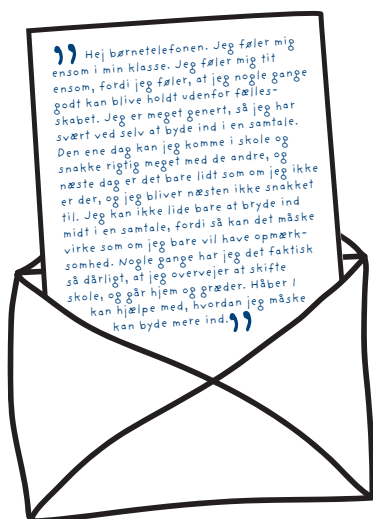 ” Hej børnetelefonen. Jeg føler mig
ensom i min klasse. Jeg føler mig tit
ensom, fordi jeg føler, at jeg nogle gange
godt kan blive holdt udenfor fælles-
skabet. Jeg er meget genert, så jeg har
svært ved selv at byde ind i en samtale.
Den ene dag kan jeg komme i skole og
snakke rigtig meget med de andre, og
næste dag er det bare lidt som om jeg ikke
er der, og jeg bliver næsten ikke snakket
til. Jeg kan ikke lide bare at bryde ind
midt i en samtale, fordi så kan det måske
virke som om jeg bare vil have opmærk-
somhed. Nogle gange har jeg det faktisk
så dårligt, at jeg overvejer at skifte
skole, og går hjem og græder. Håber I
kan hjælpe med, hvordan jeg måske
kan byde mere ind.”